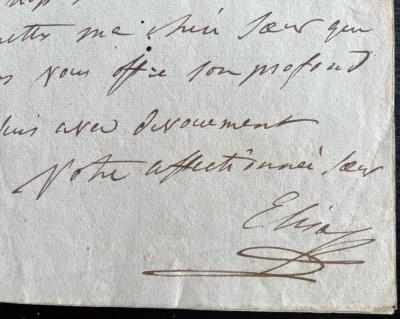 ma chère sœur que
vous offre son profond
suis avec dévouement
Votre affectionnée sœur
Elisa